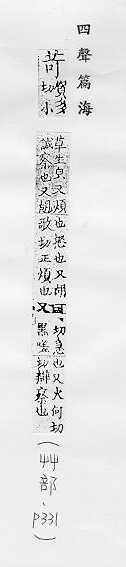 四聲篇海
苛
賀多
切小
草生皃又煩也怒也又胡
也又胡歌切正煩也
又
切急也又火何切
黑嗟切辯察也
(艸部、P331)